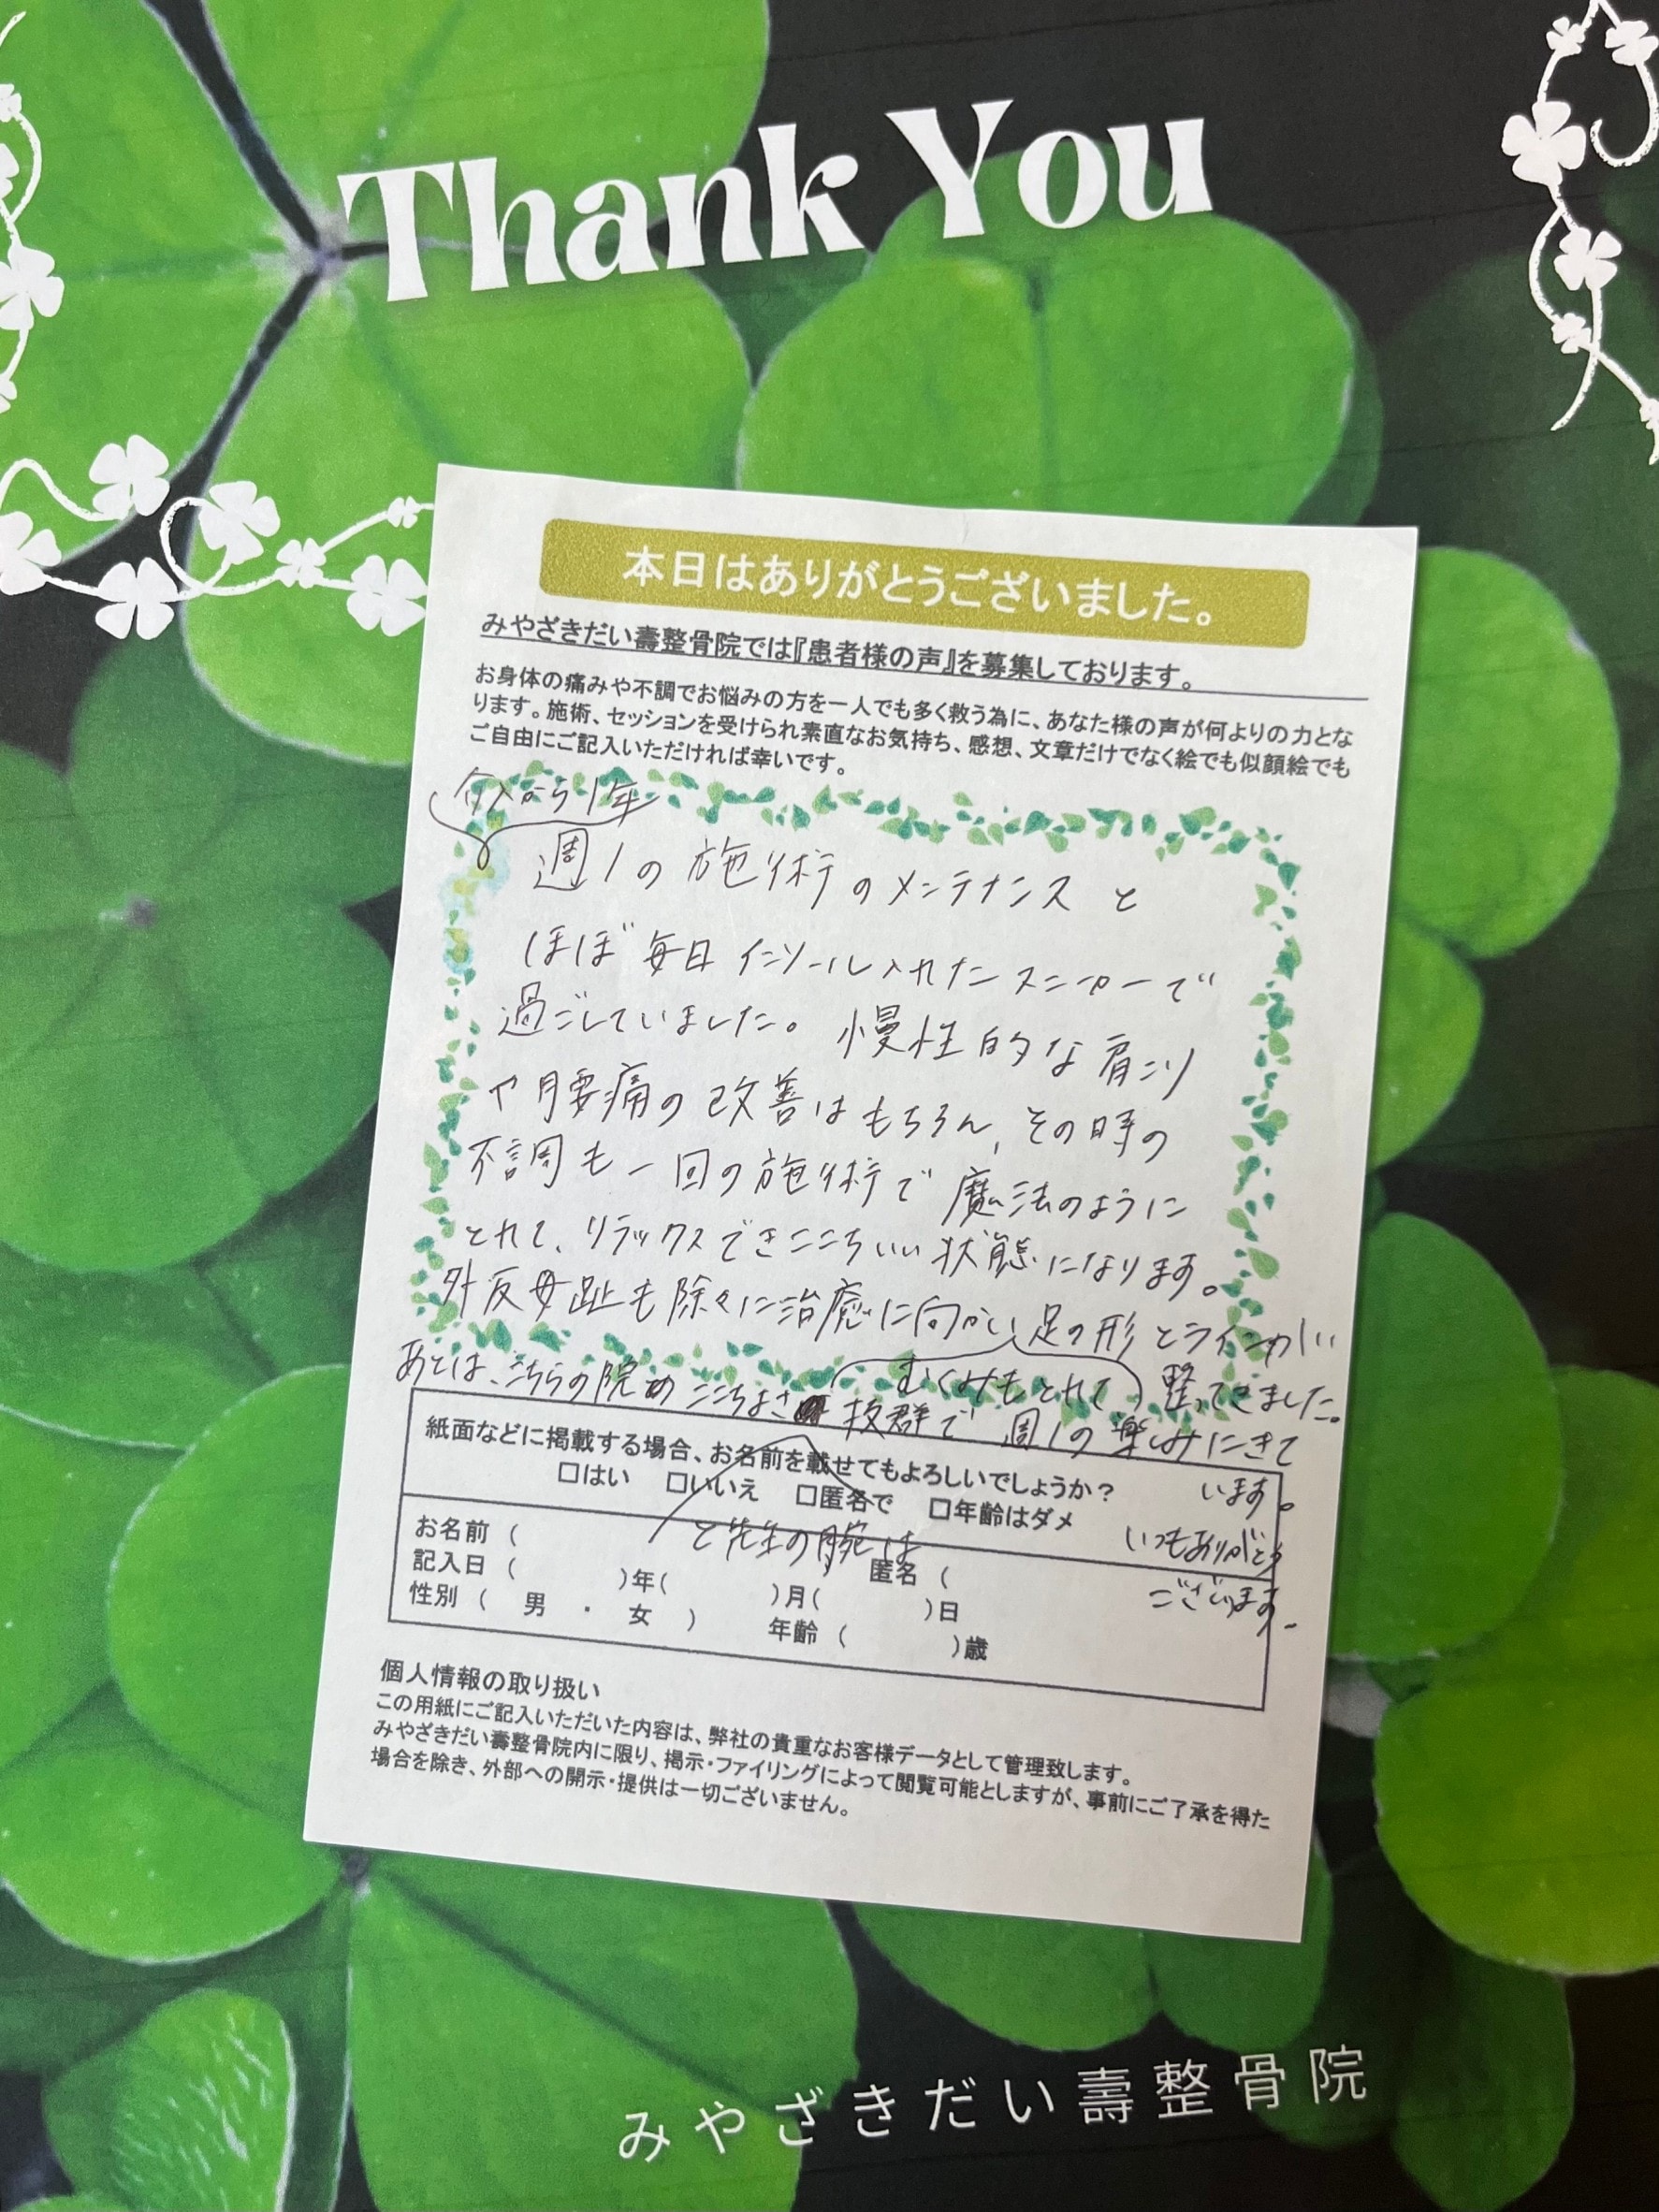 Thank You
本日はありがとうございました。
みやざきだい壽整骨院では『患者様の声』を募集しております。
お身体の痛みや不調でお悩みの方を一人でも多く救う為に、あなた様の声が何よりの力とな
ります。施術、セッションを受けられ素直なお気持ち、感想、文章だけでなく絵でも似顔絵でも
ご自由にご記入いただければ幸いです。
から1年
週1の施術のメンテナンスと
ほぼ毎日インソール入れたスニーカーで
過ごしていました。慢性的な肩こり
や腰痛の改善はもちろん、その時の
不調も一回の施術で魔法のように
とれて、リラックスできここちいい状態になります。
外反母趾も除々に治癒に向かい足の形とラインがい
むくみもとれて 整ってきました。
あとは、こちらの院の ここちよさ 抜群で 週1の楽しみにきて
います。
と先生の腕は
いつもありがとう
ございます。
紙面などに掲載する場合、お名前を載せてもよろしいでしょうか？
□はい □いいえ □匿名で □年齢はダメ
お名前（ 匿名（
記入日（ ）年（ ）月（ ）日
性別（ 男 ・ 女 ） 年齢（ ）歳
個人情報の取り扱い
この用紙にご記入いただいた内容は、弊社の貴重なお客様データとして管理致します。
みやざきだい壽整骨院内に限り、掲示・ファイリングによって閲覧可能としますが、事前にご了承を得た
場合を除き、外部への開示・提供は一切ございません。
みやざきだい壽整骨院